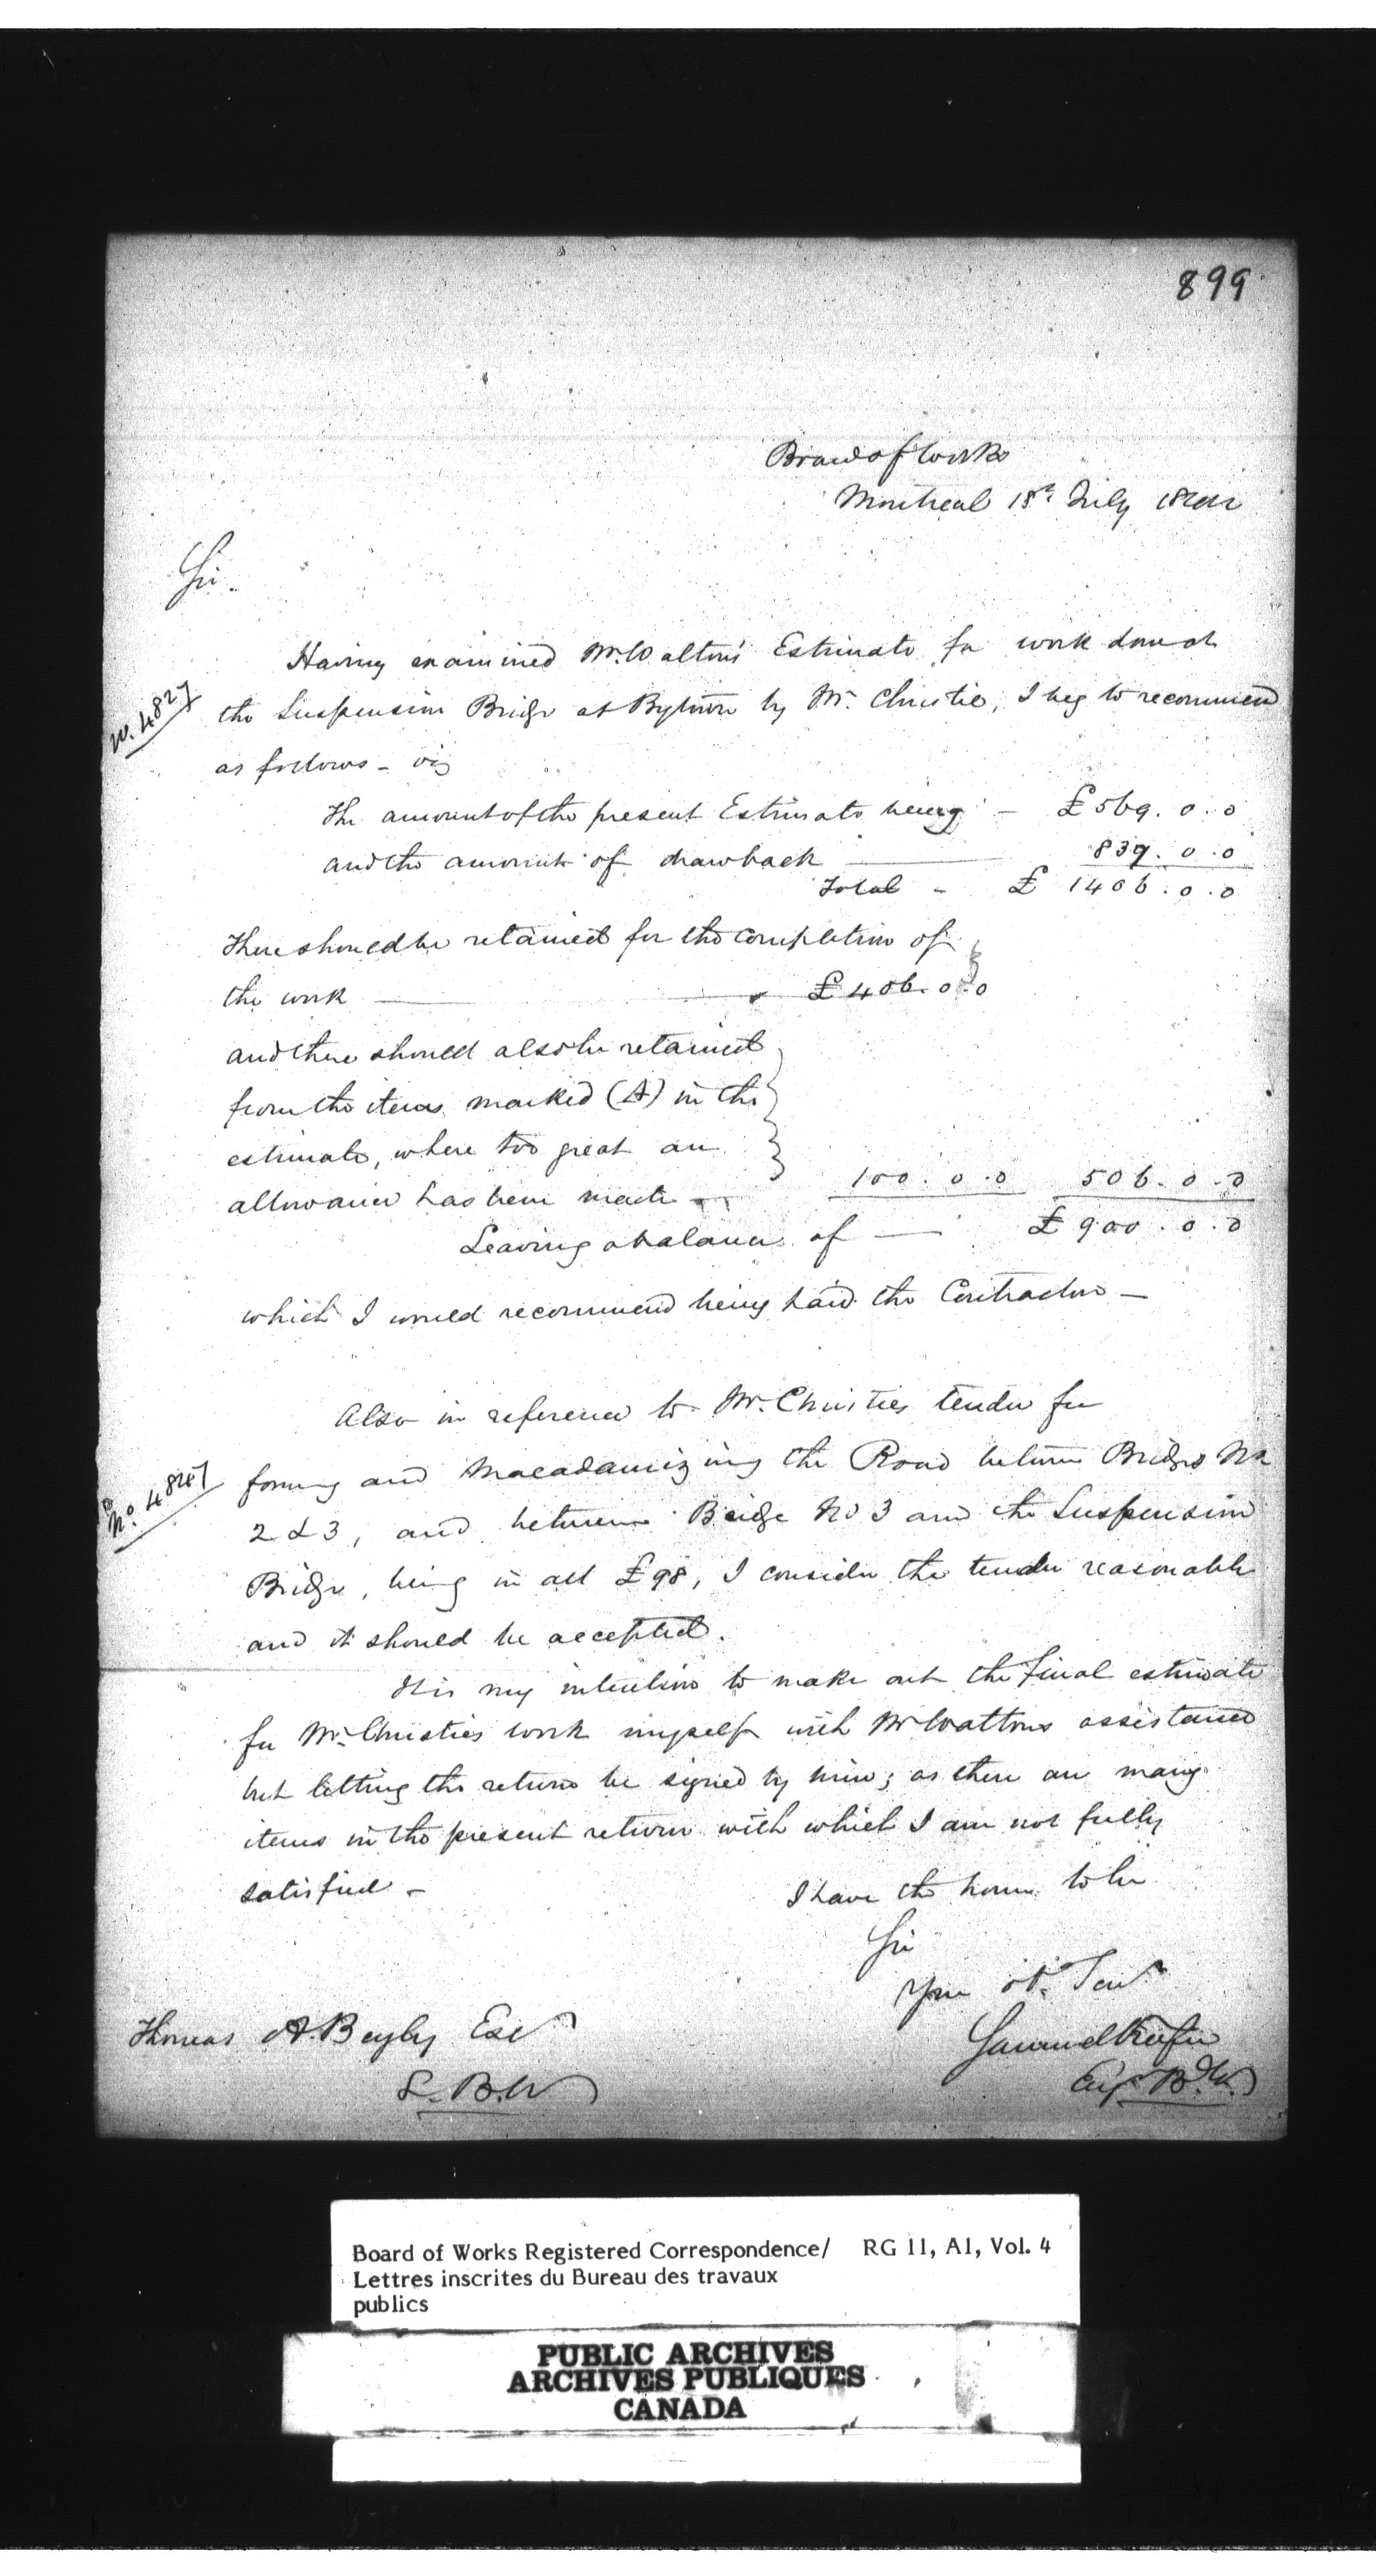 899
Board of Works
Montreal 18th July 1844
Sir.
Having examined Mr. Wattons Estimate for work done at
No. 4827
the Suspension Bridge at Bytown by Mr. Christie, I beg to recommend
as follows - viz
The amount of the present Estimate being - £569.0.0
and the amount of drawback 839.0.0
Total - £ 1406.0.0
There should be retained for the completion of
the work £406.0.0
and there should also be retained
from the items marked (A) in the
estimate, where too great an
allowance has been made 100.0.0 506.0.0
Leaving a balance of £900.0.0
which I would recommend being paid the Contractor -
Also in reference to Mr. Christies tender for
No. 4827
forming and Macadamizing the Road between Bridges Nos
2 & 3, and between Bridge No 3 and the Suspension
Bridge, being in all £98, I consider the tender reasonable
and it should be accepted.
It is my intention to make out the final estimate
for Mr. Christies work myself with Mr Wattons assistance
but letting the return be signed by him; as there are many
items in the present return with which I am not fully
satisfied -
I have the honor to be
Sir
Your Ob. Servt
Thomas A. Begly Esqr
Samuel Keefer
S. B. W
Engr Bd. W.
Board of Works Registered Correspondence/ RG 11, A1, Vol. 4
Lettres inscrites du Bureau des travaux
publics
PUBLIC ARCHIVES
ARCHIVES PUBLIQUES
CANADA